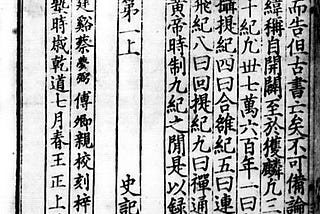 而告但古書亡矣不可備論
緯稱自開闢至於獲麟凡三
十紀凡世七萬六百年一曰
攝提紀四曰合雒紀五曰連
飛紀八曰回提紀九曰禪通
黃帝時制九紀之間是以録
第一上 史記
建谿蔡夢弼傅卿親校刻梓
塾時歲乾道七月春王正上